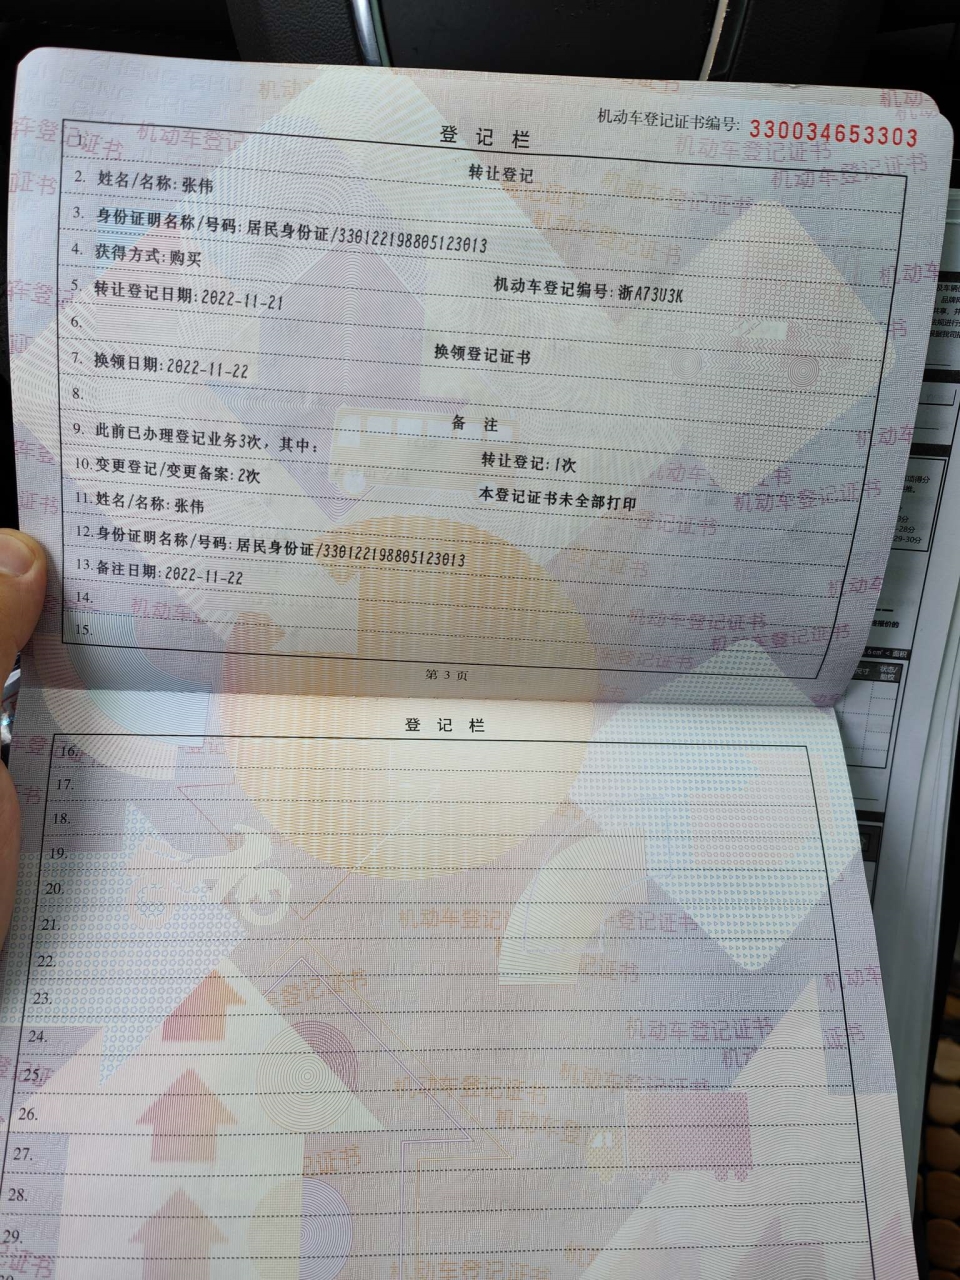 机动车登记证书编号: 330034653303
登 记 栏
1. 转让登记
2. 姓名/名称: 张伟
3. 身份证明名称/号码: 居民身份证/330122198805123013
4. 获得方式: 购买 机动车登记编号: 浙A73U3K
5. 转让登记日期: 2022-11-21
6. 换领登记证书
7. 换领日期: 2022-11-22
8. 备 注
9. 此前已办理登记业务3次，其中: 转让登记: 1次
10. 变更登记/变更备案: 2次 本登记证书未全部打印
11. 姓名/名称: 张伟
12. 身份证明名称/号码: 居民身份证/330122198805123013
13. 备注日期: 2022-11-22
14.
15.
第 3 页
登 记 栏
16.
17.
18.
19.
20.
21.
22.
23.
24.
25.
26.
27.
28.
29.